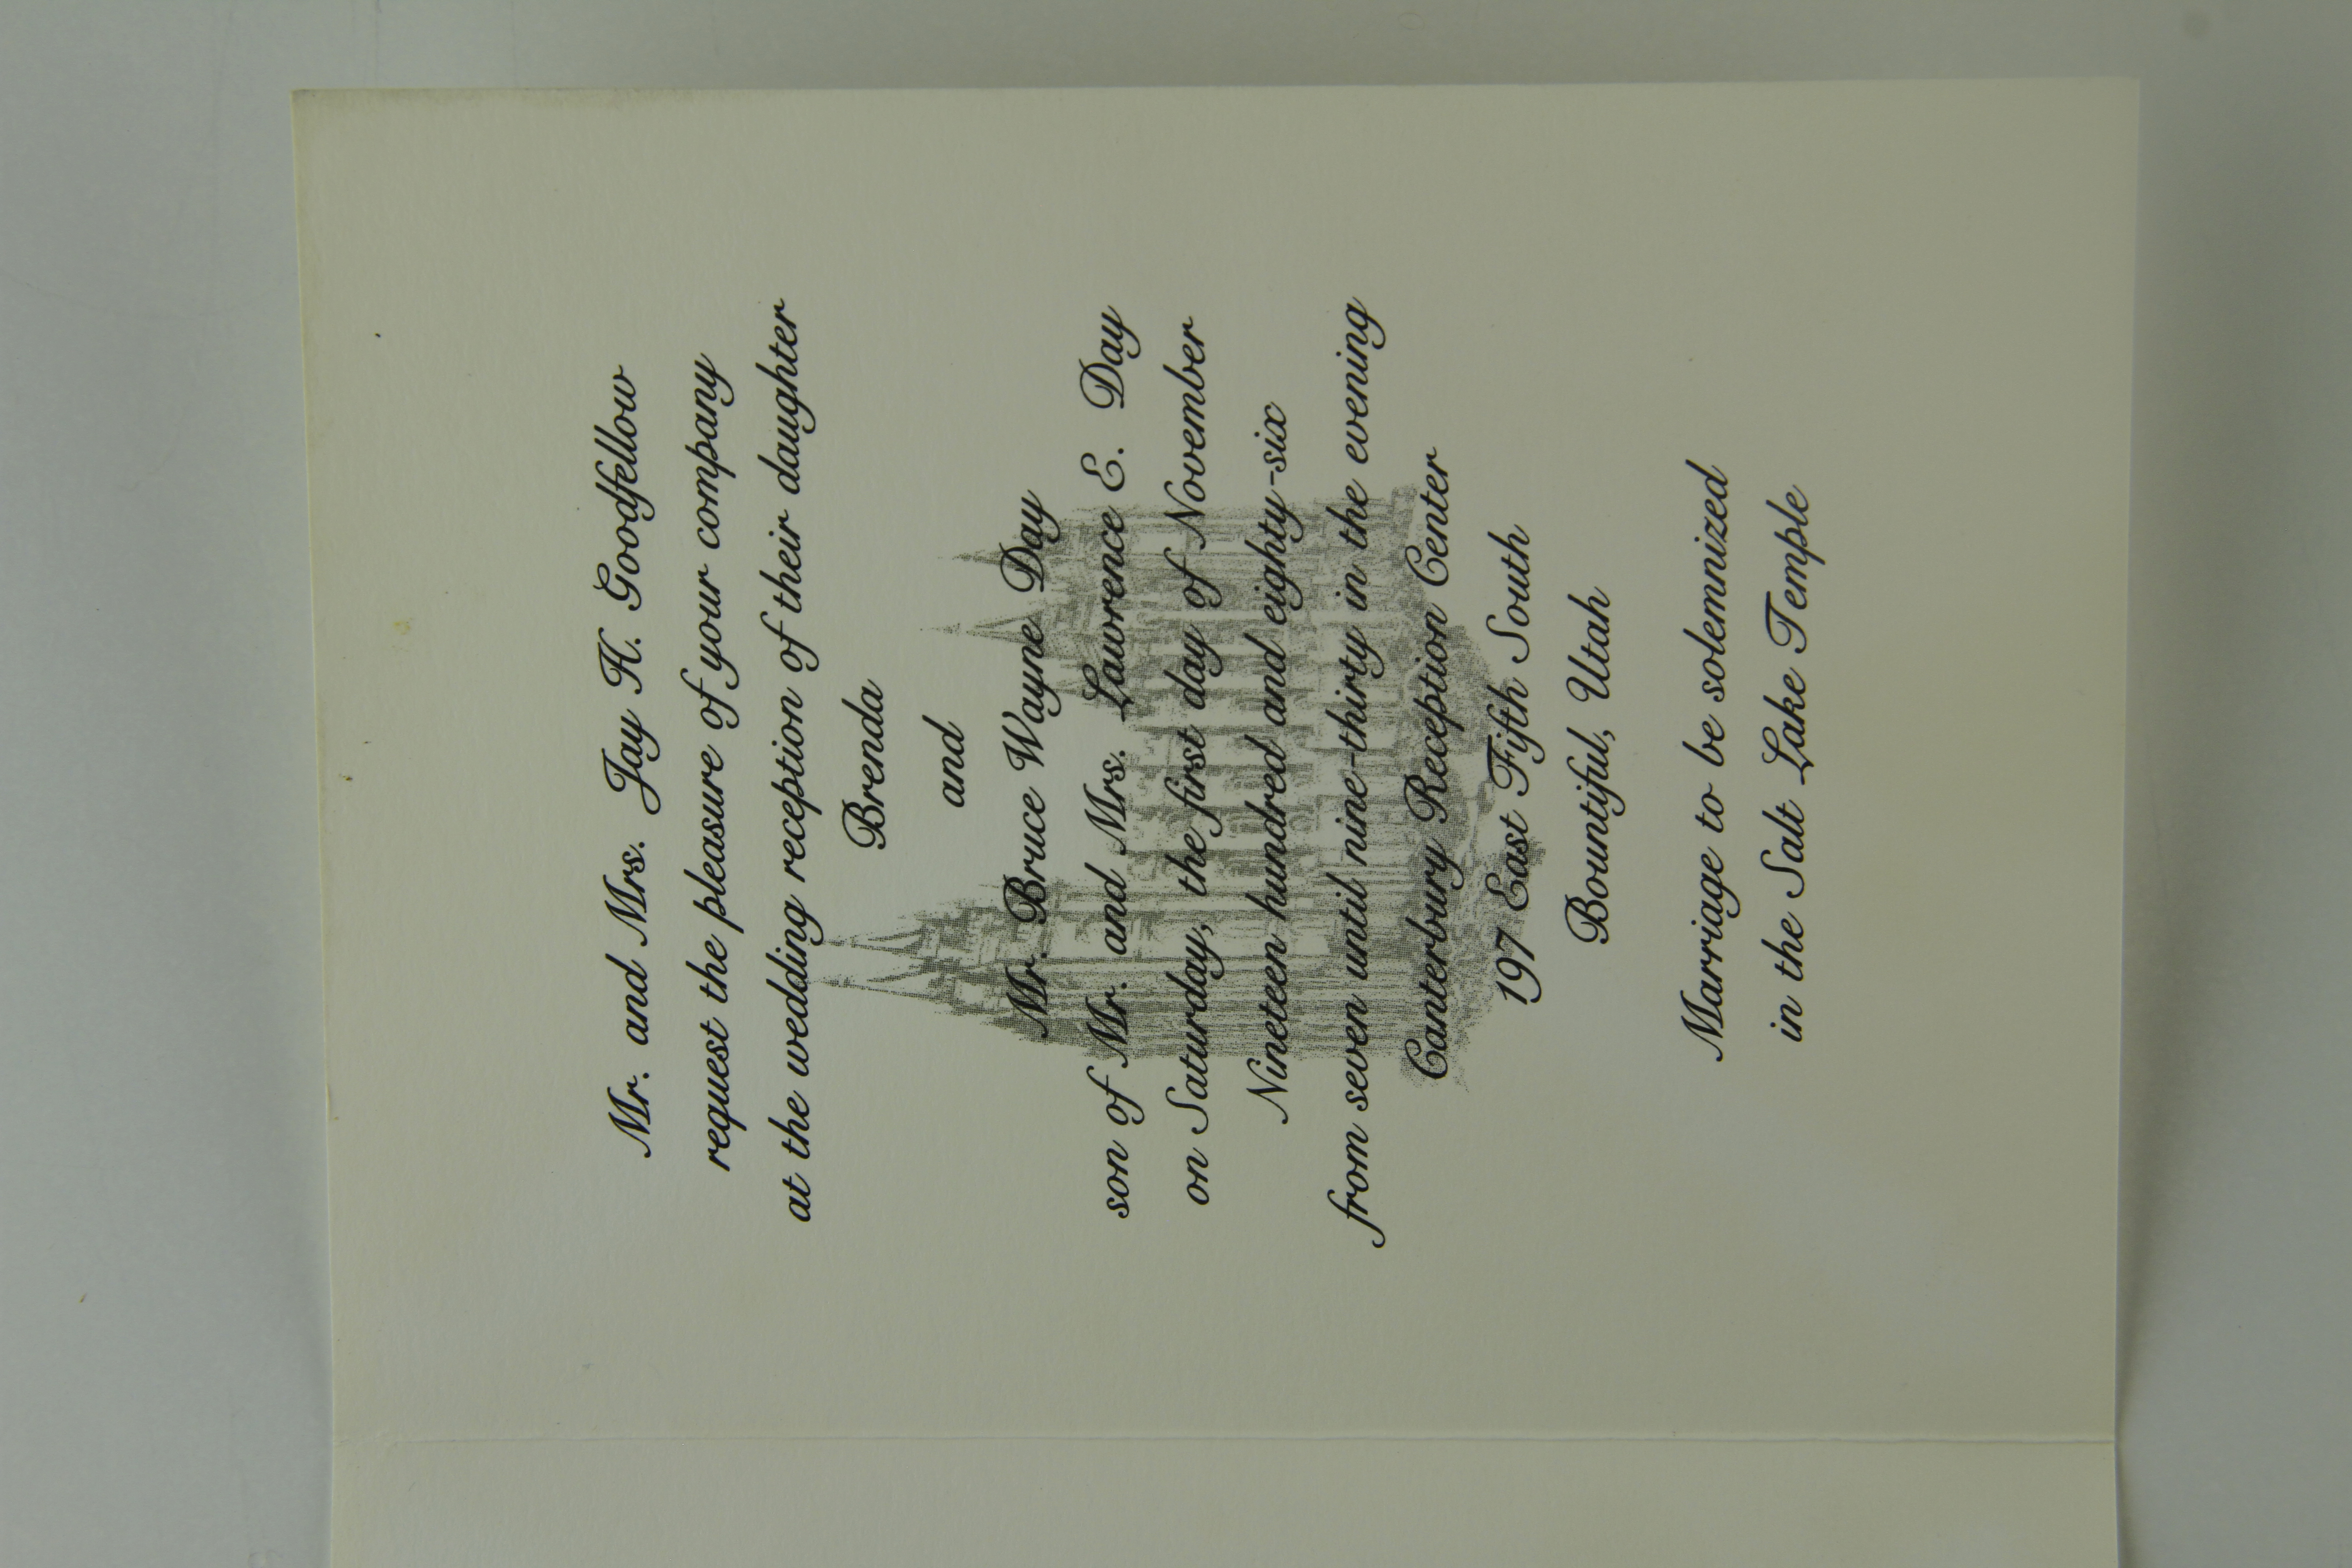 Mr. and Mrs. Jay K. Goodfellow
request the pleasure of your company
at the wedding reception of their daughter
Brenda
and
Mr. Bruce Wayne Day
son of Mr. and Mrs. Lawrence E. Day
on Saturday, the first day of November
Nineteen hundred and eighty-six
from seven until nine-thirty in the evening
Canterbury Reception Center
197 East Fifth South
Bountiful, Utah
Marriage to be solemnized
in the Salt Lake Temple